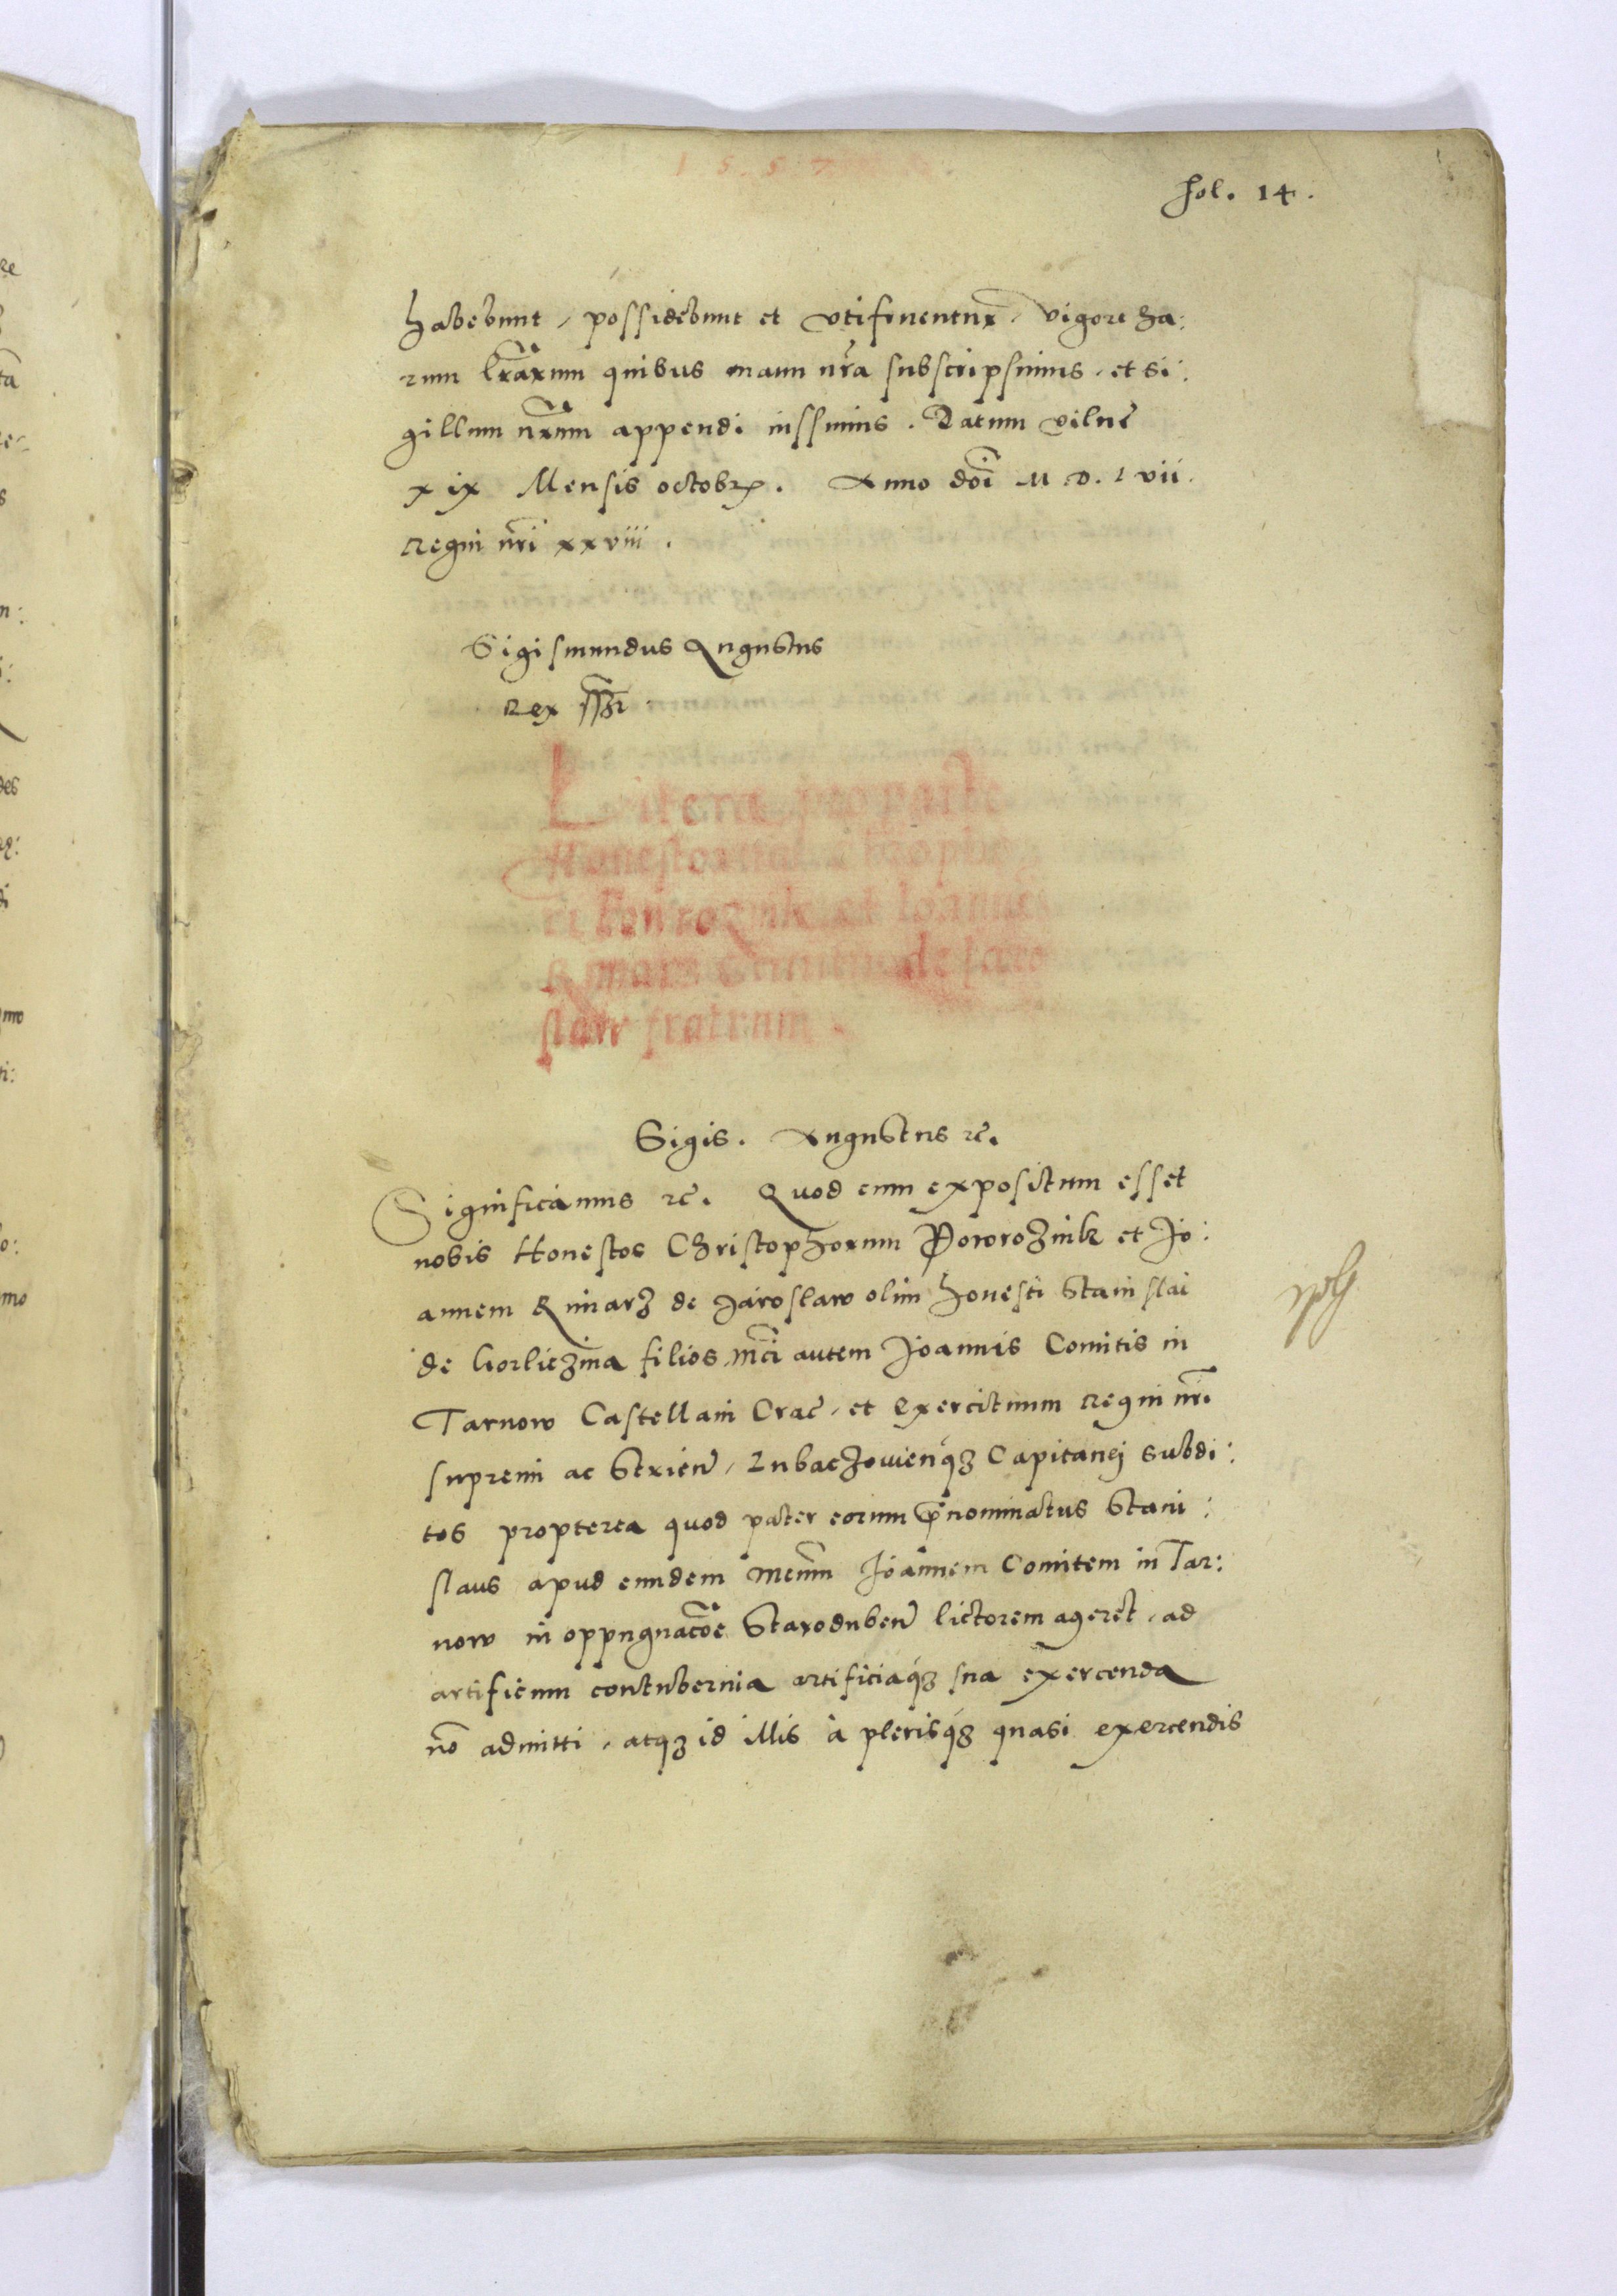 1 5 5 7
fol. 14.
habebunt, possidebunt et utifruentur, vigore ha:
rum lrarum quibus manu nra subscripsimus, et si:
gillum nrum appendi iussimus. Datum Vilne
xix Mensis octobr. Anno doi M.D.Lvii.
Regni nri xxviii.
Sigismundus Augustus
Rex sst
Litera pro parte
Honestorum Christopho
ri Powroznik et Joannis
Rimarz Germano de Jaro
slaw fratrum.
Sigis. Augustus rc.
Significamus rc. Quod cum expositum esset
nobis Honestos Christophorum Powroznik et Jo:
annem Rimarz de Jaroslaw olim honesti Stanislai
de Gorliczina filios, mci autem Joannis Comitis in
Tarnow Castellani Crac, et Exercituum Regni nri
supremi ac Strien, Lubaczowienqz Capitanej subdi:
tos propterea quod pater eorum pnominatus Stani:
slaus apud eundem Mcum Joannem Comitem in Tar:
now in oppugnacoe Staroduben lictorem ageret, ad
artificum contubernia artificiaqz sua exercenda
no admitti, atqz id illis à plerisqz quasi exercendis